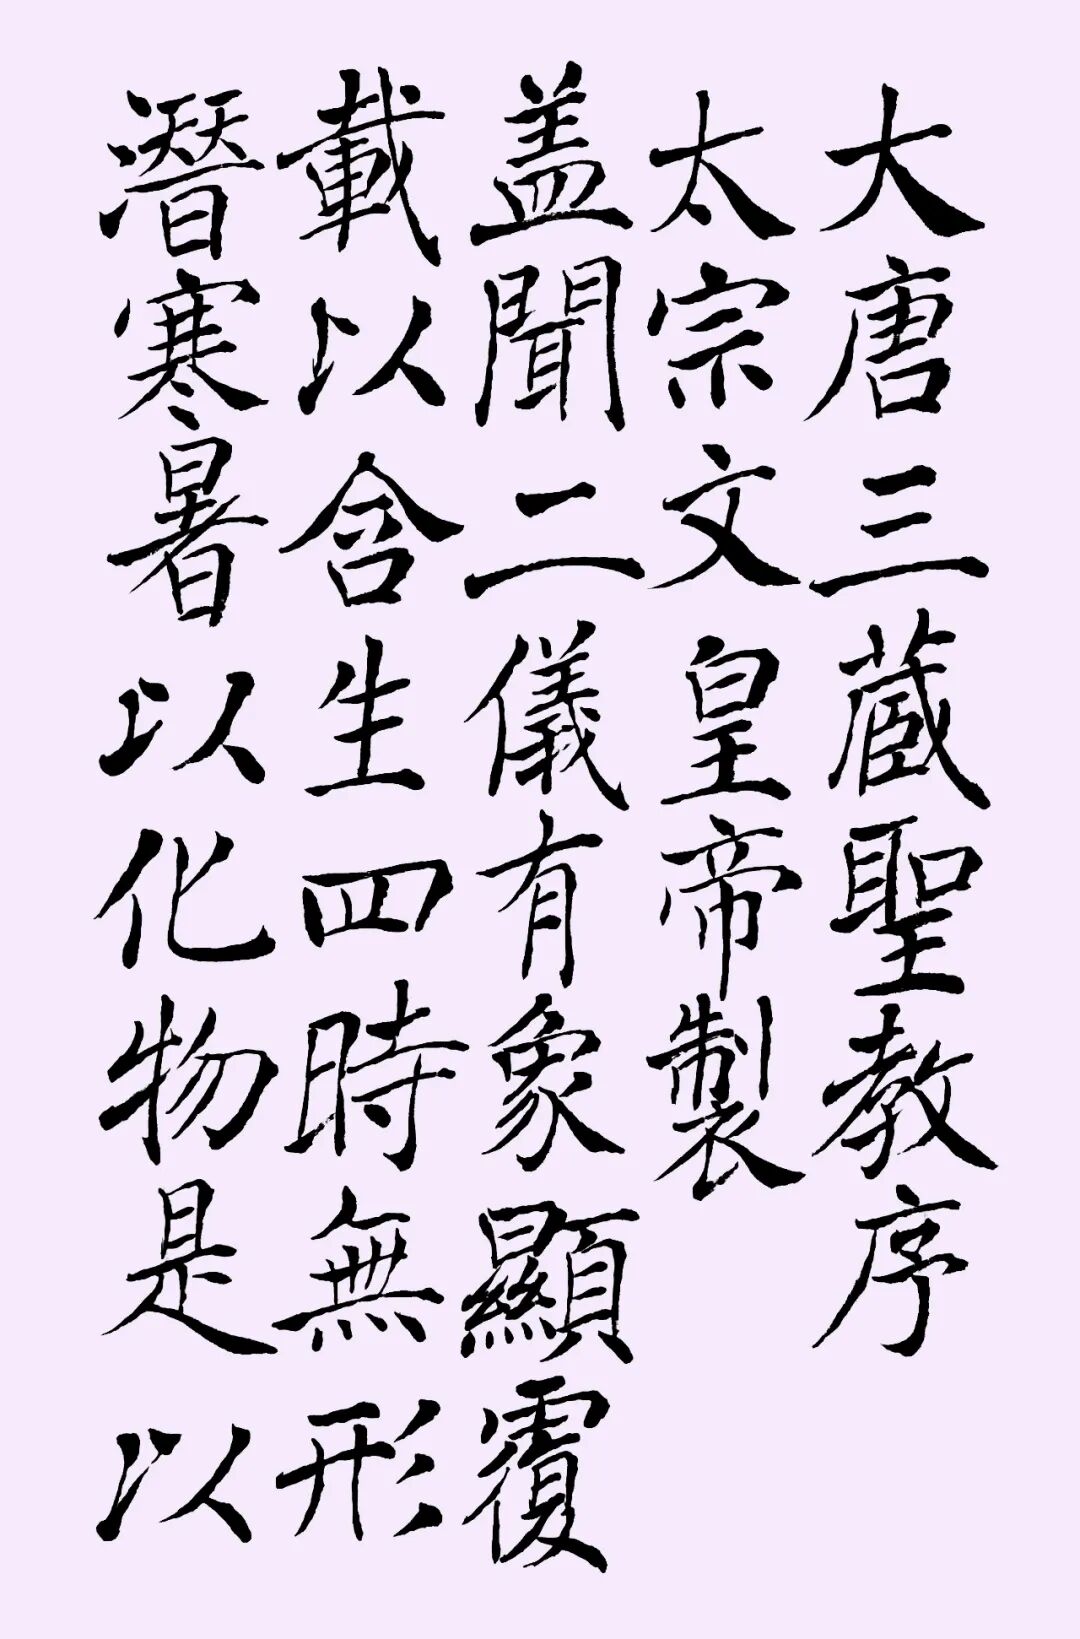 大唐三藏聖教序
太宗文皇帝製
盖聞二儀有象顯覆
載以含生四時無形
潛寒暑以化物是以